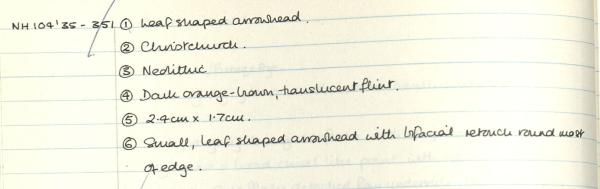 NH 104'35 - 351 ① Leaf shaped arrowhead.
② Christchurch.
③ Neolithic
④ Dark orange-brown, translucent flint.
⑤ 2.4cm x 1.7cm.
⑥ Small, leaf shaped arrowhead with bifacial retouch round most
of edge.